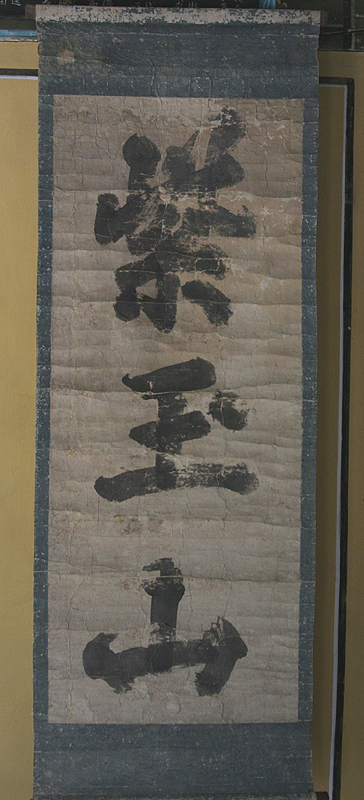 紫玉山